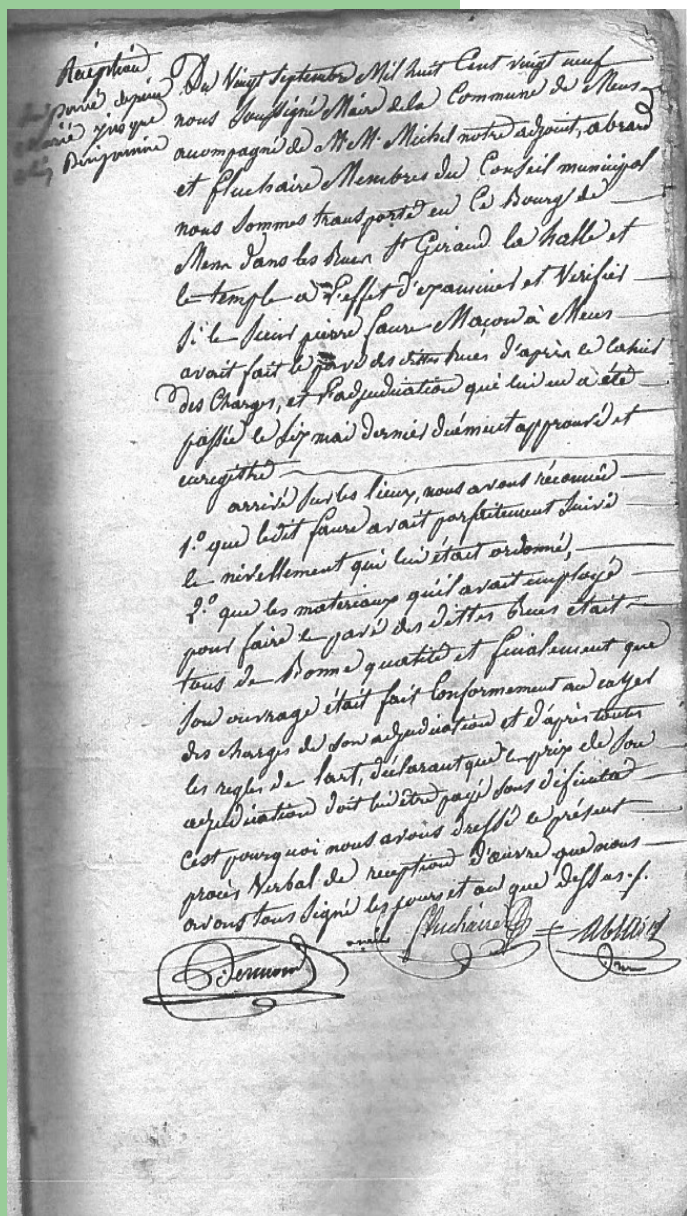 Réception
pavé depuis
jusque
Benjamine
Du Vingt Septembre Mil huit Cent vingt neuf
nous Soussigné Maire de la Commune de Mens
acompagné de Mrs M. Michel notre adjoint, abrard
et fluchaire Membres du Conseil municipal
nous Sommes transporté en Ce Bourg de
Mens dans les Rues St Giraud la halle et
le temple a L'effet d'examiner et Verifier
Si le Sieur pierre faure Maçon à Mens
avait fait le pavé des dittes rues d'après le Cahier
des Charges, et l'adjudication qui lui en a été
passée le Six mai dernier duément approuvé et
enregistré
arrivé Sur les lieux, nous avons réconnu
1.º que ledit faure avait parfaitement Suivi
le nivellement qui lui était ordonné,
2.º que les materiaux qu'il avait employé
pour faire le pavé des dittes Rues était
tous de Bonne qualité et finalement que
Son ouvrage était fait Conformement au cayer
des charges de Son adjudication et d'après toutes
les regles de l'art, déclarant que le prix de Son
adjudication doit lui être payé Sans dificulté
C'est pourquoi nous avons dressé le présent
procès Verbal de reception d'œuvre que nous
avons tous Signé les jours et an que dessus./.
fluchaire abrard